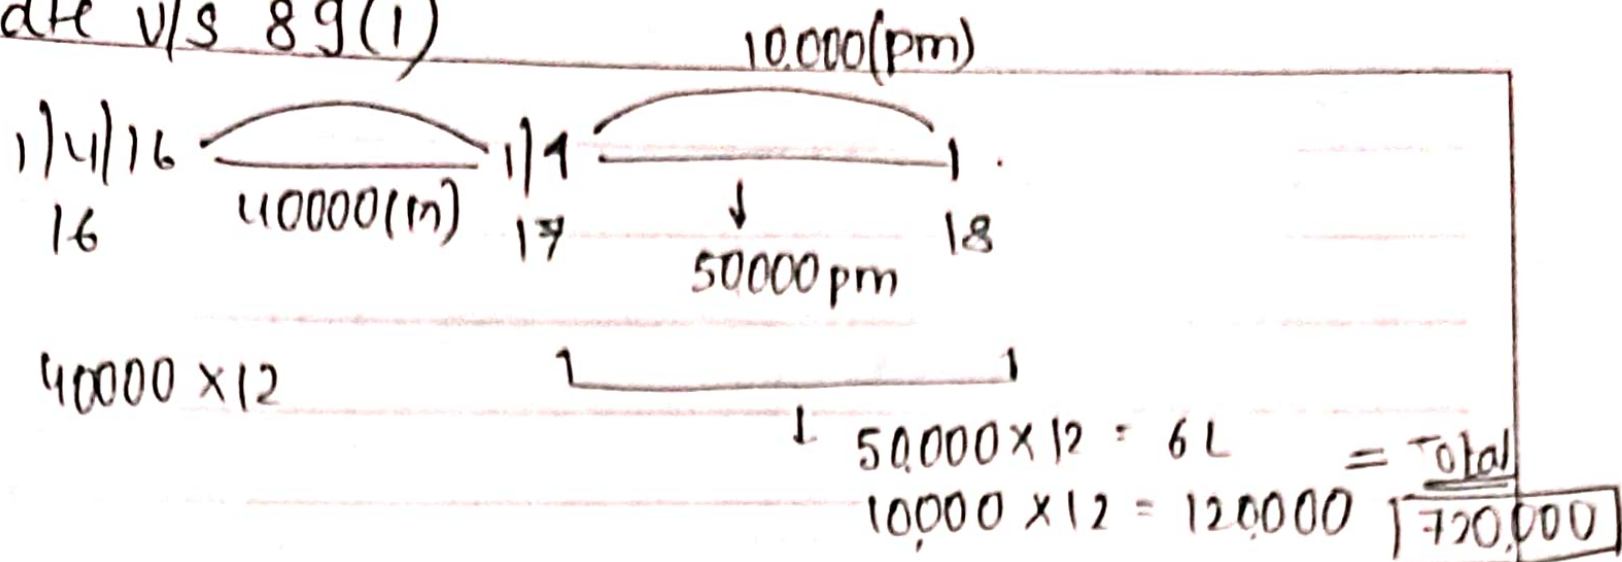 u/s 89(1)
10,000(pm)
1/4/16 1/4 1
16 40000(m) 17 18
50000pm
40000 × 12
50,000 × 12 = 6 L = Total
10,000 × 12 = 120,000 720,000